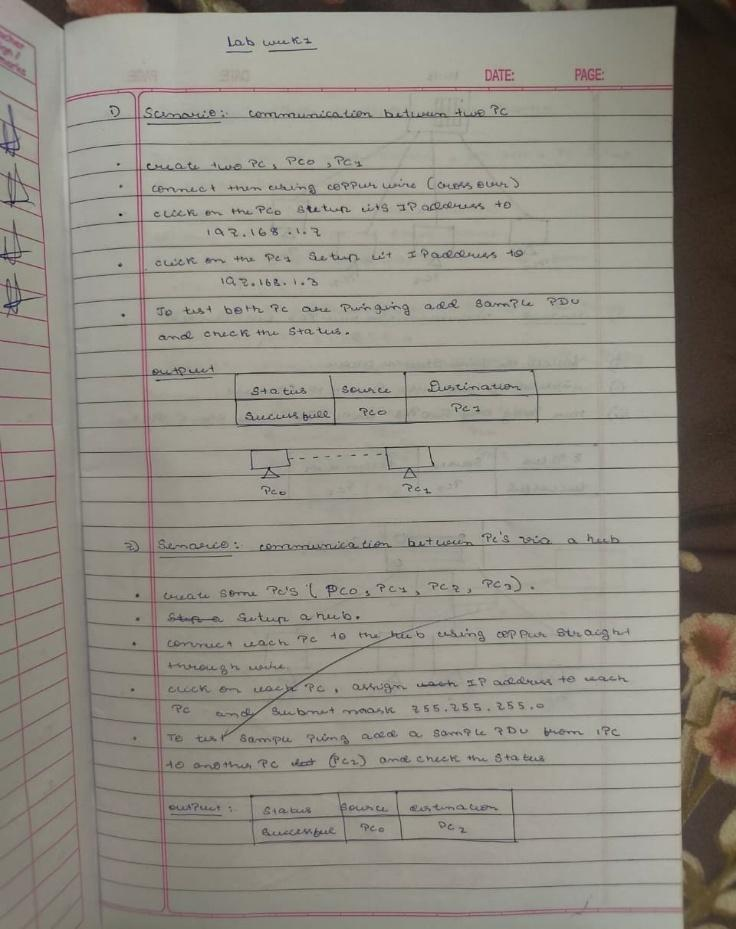 Lab week1
DATE: PAGE:
1) Scenario: communication between two PC
• create two PC, PC0, PC1
• connect then using coppur wire (cross over)
• click on the PC0 Setup its IP address to
192.168.1.2
• click on the PC1 Setup it IP address to
192.168.1.3
• To test both PC are Pinging add Sample PDU
and check the Status.
output
Status Source Destination
Successfull PC0 PC1
PC0 PC1
2) Senario: communication between PC's via a hub
• create some PC's (PC0, PC1, PC2, PC3).
• Setup a hub.
• connect each PC to the hub using coppur Straight
through wire.
• click on each PC, assign each IP address to each
PC and Subnet mask 255.255.255.0
• To test Sample Ping add a Sample PDU from 1PC
to another PC (PC2) and check the Status
output: Status Source destination
Successful PC0 PC2